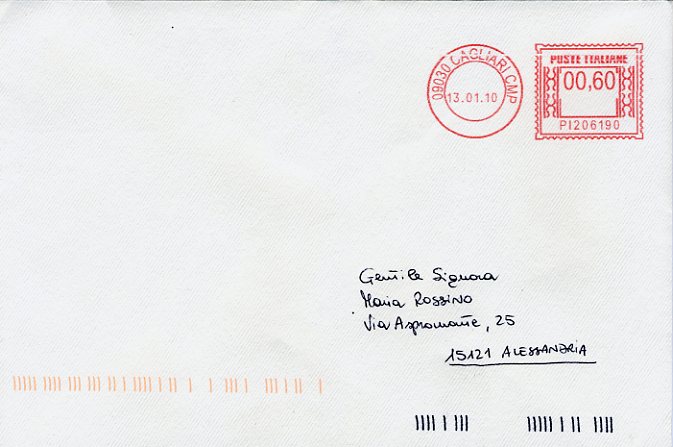 09030 CAGLIARI CMP
13.01.10
POSTE ITALIANE
00,60
PI206190
Gentile Signora
Maria Rossino
Via Aspromonte, 25
15121 ALESSANDRIA